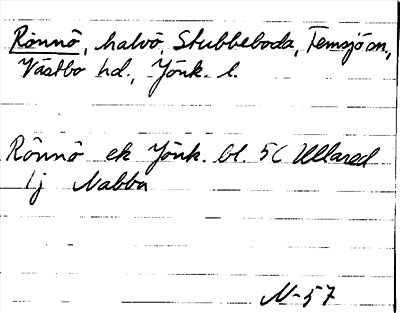 Rönnö, halvö, Stubbeboda, Femsjö sn.,
Västbo hd., Jönk. l.
Rönnö ek Jönk. bl. 56 Ullared
lj Nabba
N-57